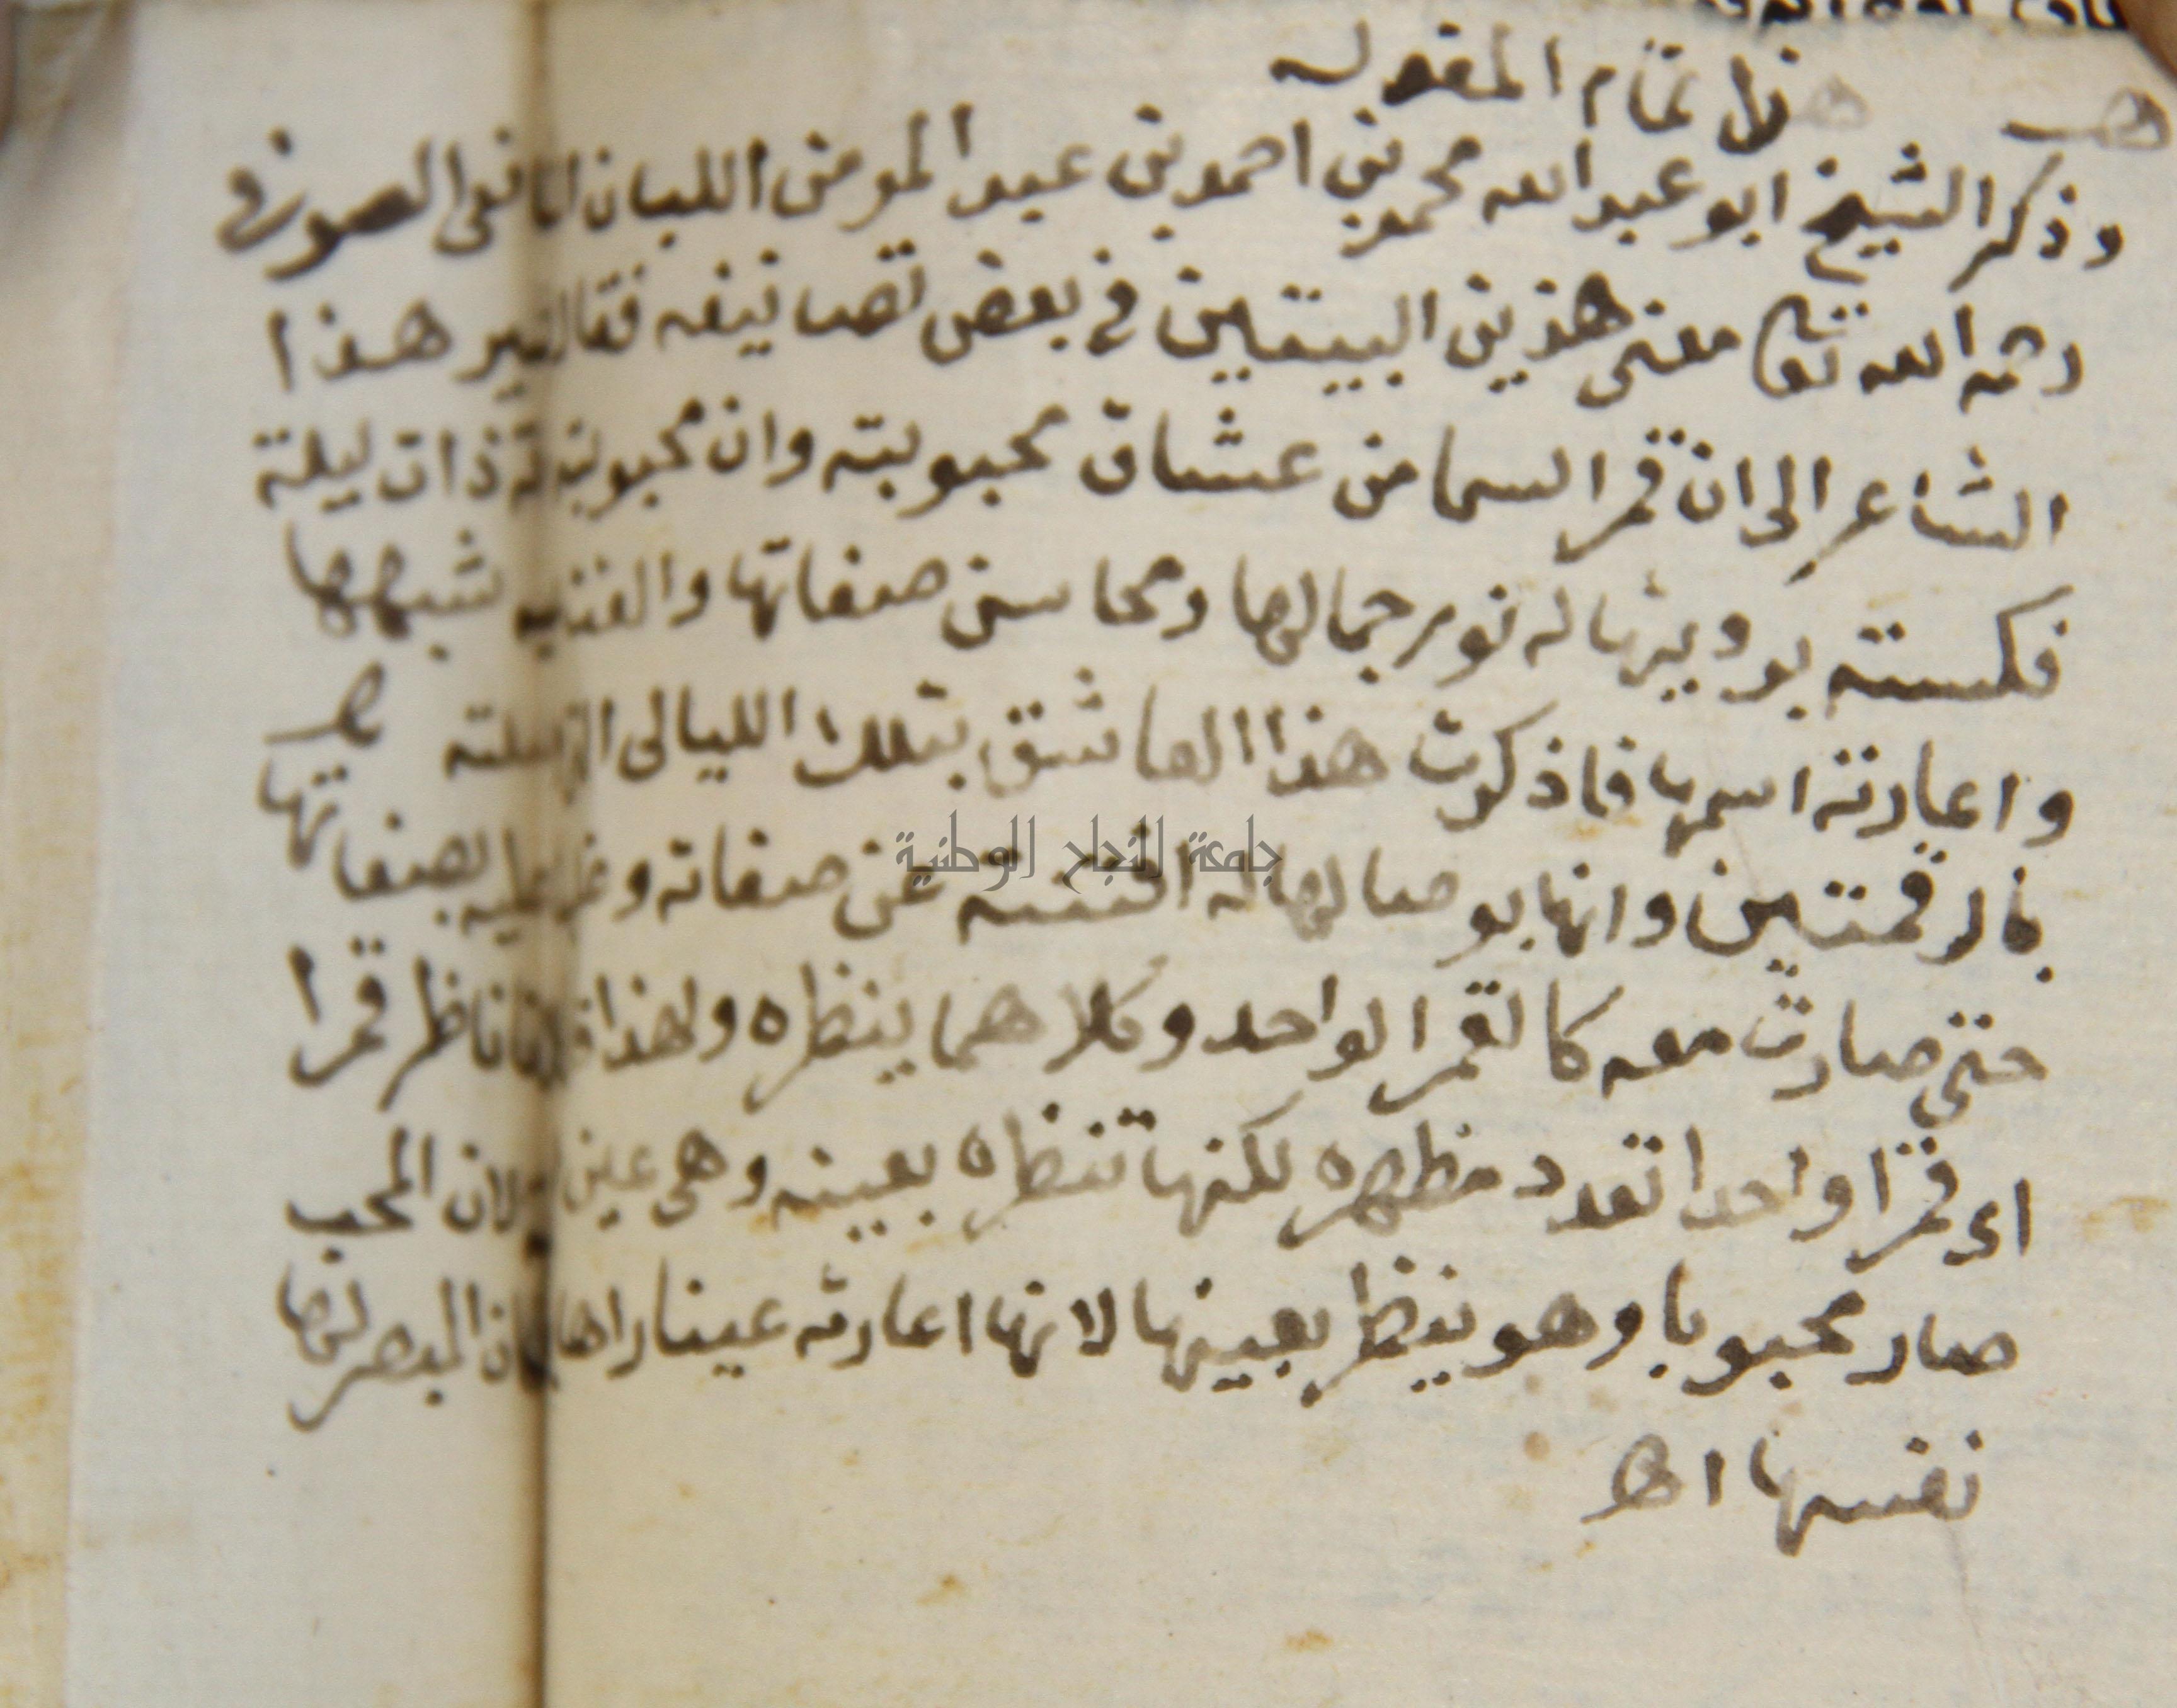 تمام المقول
وذكر الشيخ ابو عبد الله محمد بن احمد بن عبد المومن اللبان الصوفي
رحمه الله تعالى معنى هذين البيتين في بعض تصانيفه فقال هذا
الشاعر الى ان قمر السما من عشاق محبوبته وان محبوبته ذات ليلة
فكسته نور جمالها ومحاسن صفاتها شبهها
واعارته اسمها فاذكرت هذا العاشق بتلك الليالى
بالرقمتين وانها بوصالها له افنته عن صفاته بصفاتها
جامعة النجاح الوطنية
حتى صارت معه كالقمر الواحد وكلاهما ينظره ولهذا ناظر قمرا
اى قمرا واحدا تعدد مظهره لكنها تنظره بعينه وهى عين لان المحب
صار محبوبا وهو ينظر بعينها لانها اعارته عينا راها المبصر لها
نفسها اهـ